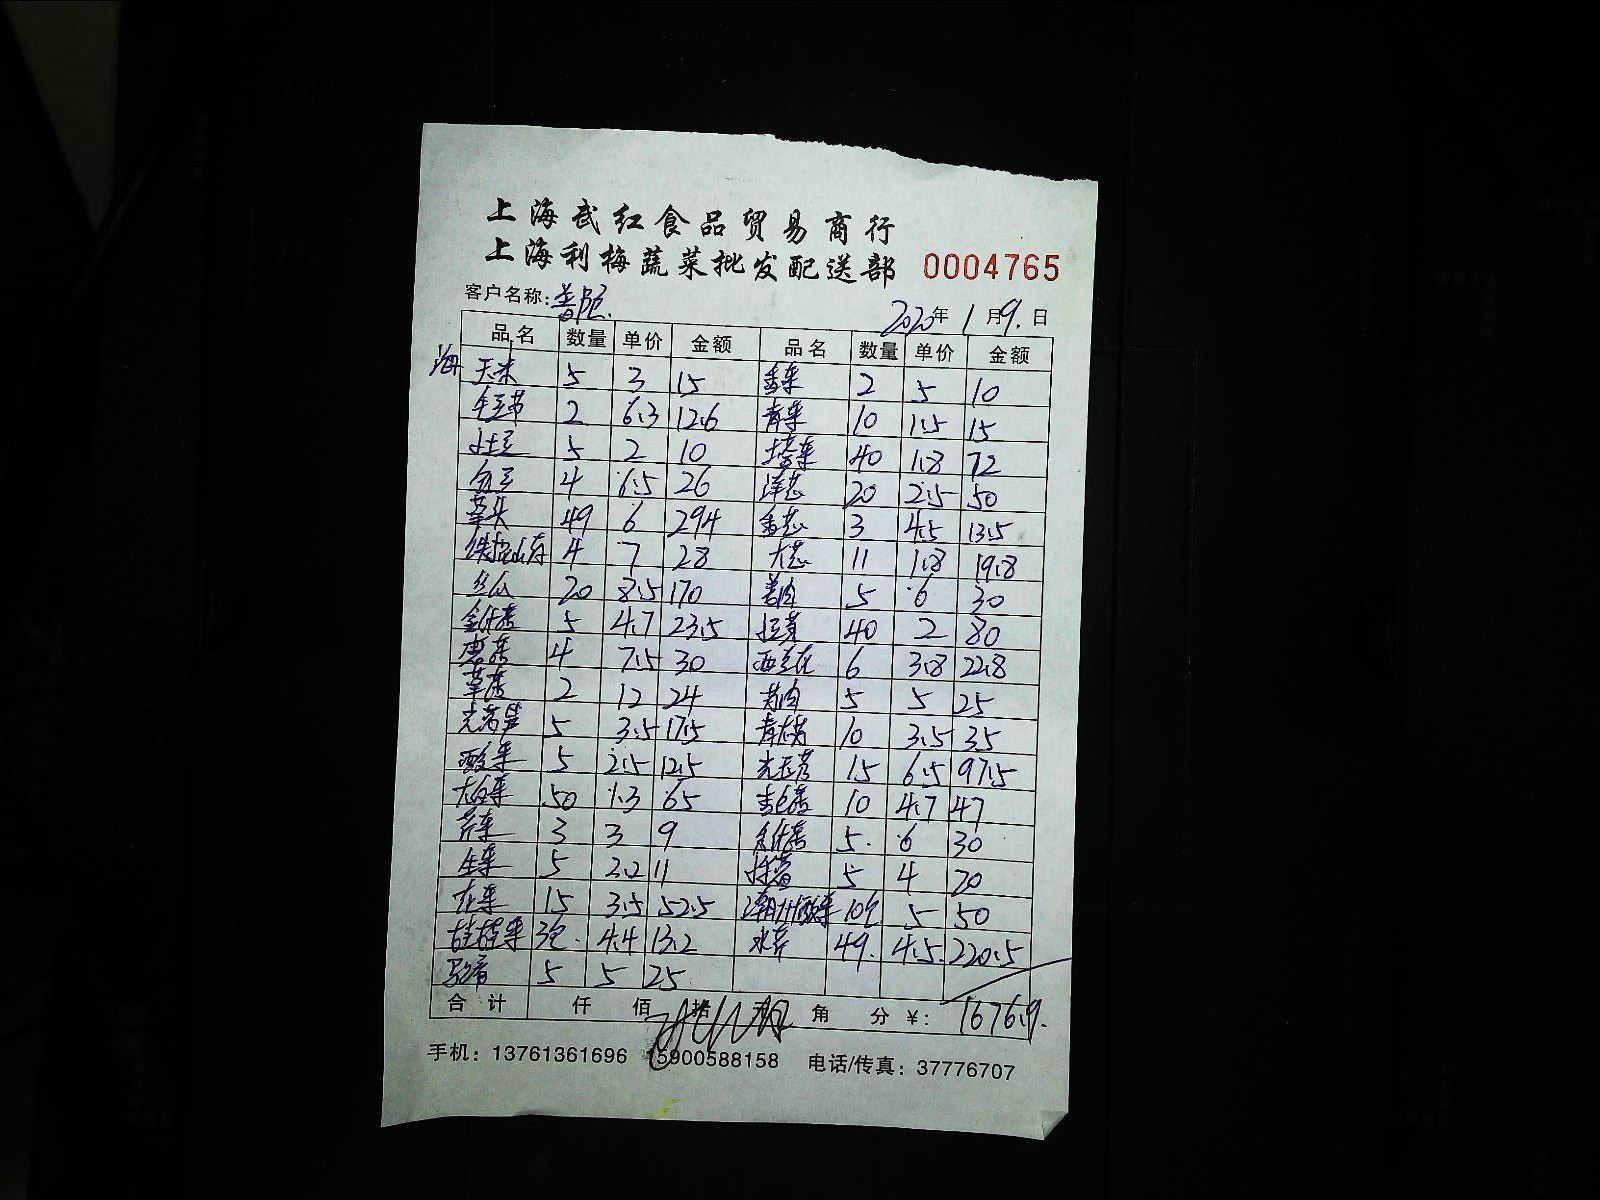 上海武红食品贸易商行
上海利梅蔬菜批发配送部 0004765
客户名称: 普陀 2020年1月9.日
品名 数量 单价 金额 品名 数量 单价 金额
5 3 15 香菜 2 5 10
毛豆节 2 6.3 12.6 青菜 10 1.5 15
小土豆 5 2 10 塔菜 40 1.8 72
4 6.5 26 洋芯 20 2.5 50
草头 49 6 294 香芯 3 4.5 13.5
铁棍山药 4 7 28 大芯 11 1.8 19.8
丝瓜 20 8.5 170 姜肉 5 6 30
金针菇 5 4.7 23.5 40 2 80
4 7.5 30 西兰花 6 3.8 22.8
草菇 2 12 24 5 5 25
光莴笋 5 3.5 17.5 10 3.5 35
酸菜 5 2.5 12.5 15 6.5 97.5
大白菜 50 1.3 65 10 4.7 47
芹菜 3 3 9 5 6 30
生菜 5 2.2 11 5 4 20
花菜 15 3.5 52.5 10包 5 50
3包 4.4 13.2 水芹 49 4.5 220.5
5 5 25
合计 仟 佰 拾 角 分 ¥: 1676.9
手机: 13761361696 15900588158 电话/传真: 37776707